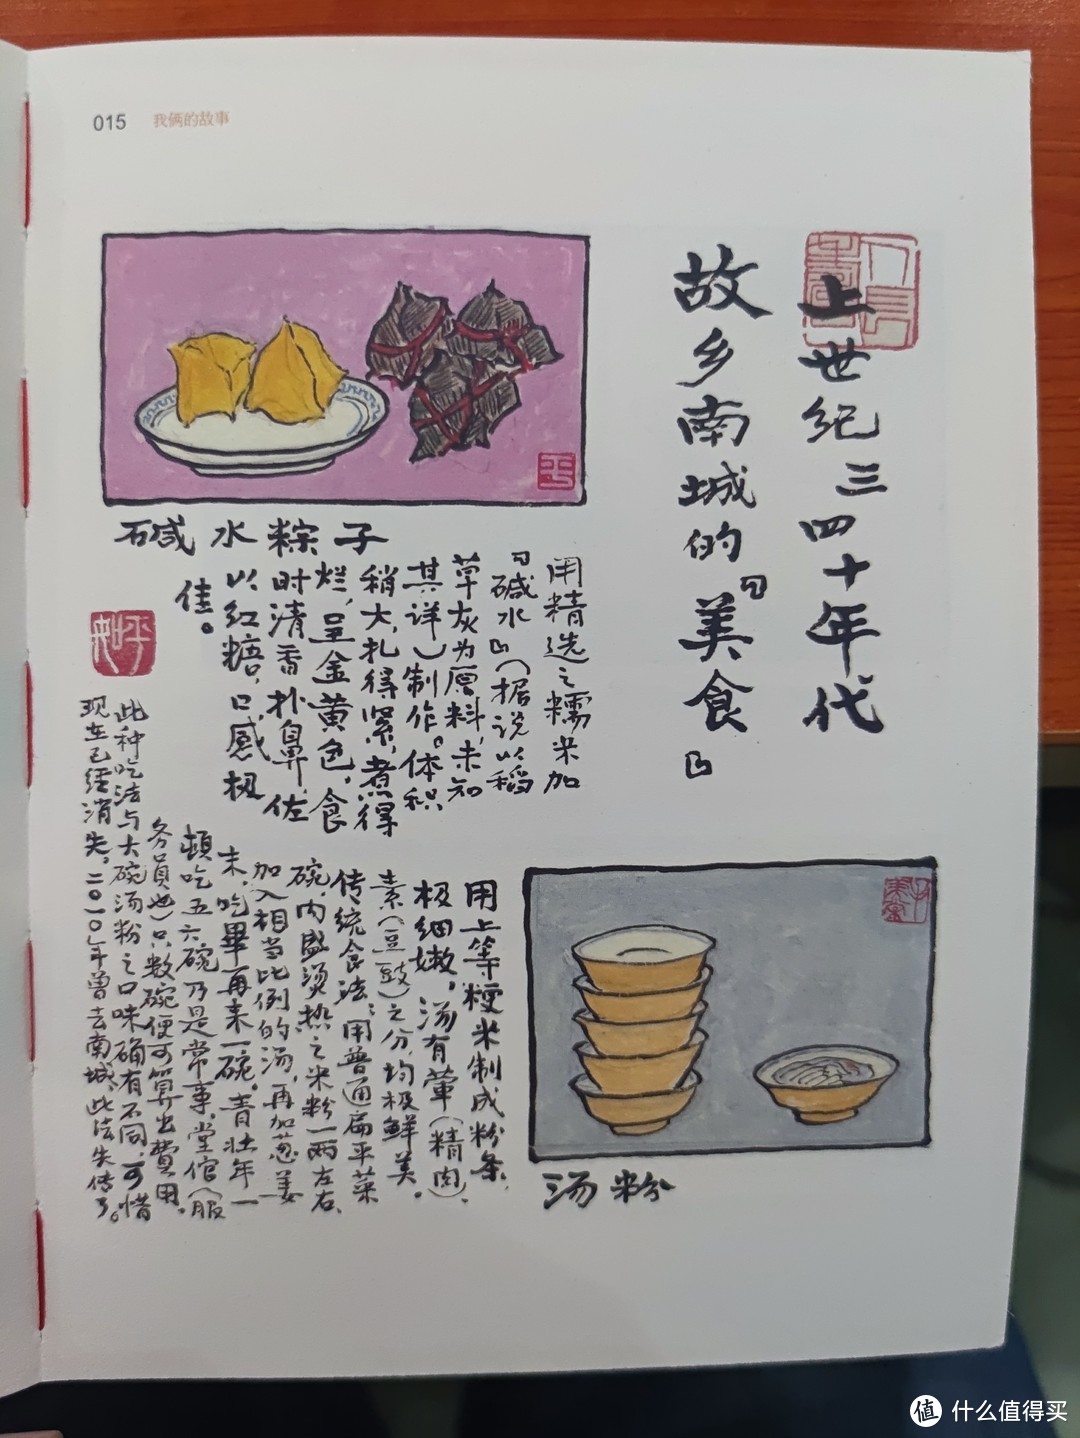 015 我俩的故事
上世纪三四十年代
故乡南城的『美食』
碱水粽子
用精选之糯米加
『碱水』（据说以稻
草灰为原料，未知
其详）制作。体积
稍大，扎得紧，煮得
烂，呈金黄色，食
时清香扑鼻，佐
以红糖，口感极
佳。
汤粉
用上等粳米制成粉条，
极细嫩，汤有荤（精肉）、
素（豆豉）之分，均极鲜美。
传统食法：用普通扁平菜
碗，内盛烫热之米粉一两左右，
加入相当比例的汤，再加葱姜
末，吃毕再来一碗。青壮年一
顿吃五六碗乃是常事，堂倌（服
务员也）只数碗便可算出费用。
此种吃法与大碗汤粉之口味确有不同，可惜
现在已经消失，二〇一〇年曾去南城，此法失传了。
值 什么值得买